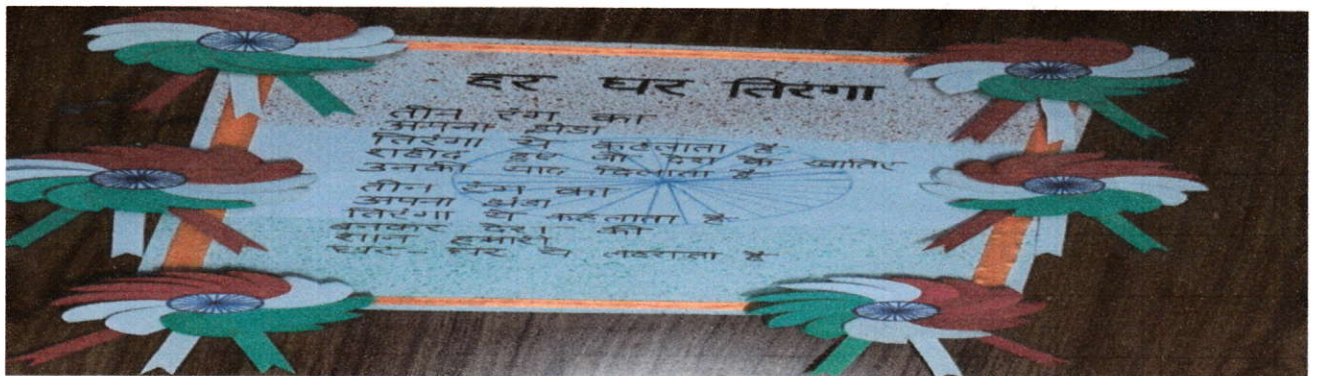 हर घर तिरंगा
तीन रंग का
अपना झंडा
तिरंगा ये कहलाता है
शहीद हुए जो देश के खातिर
उनकी याद दिलाता है
तीन रंग का
अपना झंडा
तिरंगा ये कहलाता है
बनकर देश की
शान हमारी
घर-घर पे लहराता है